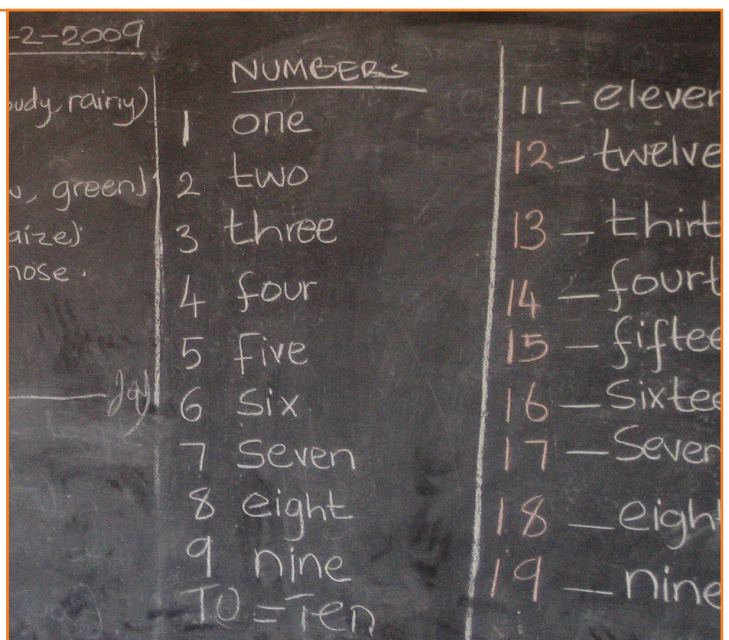 -2-2009
oudy, rainy)
, green)
aize)
hose.
NUMBERS
1 one
2 two
3 three
4 four
5 five
6 six
7 seven
8 eight
9 nine
10 = Ten
11 - eleven
12 - twelve
13 - thirt
14 - fourt
15 - fiftee
16 - Sixtee
17 - Seven
18 - eigh
19 - nine